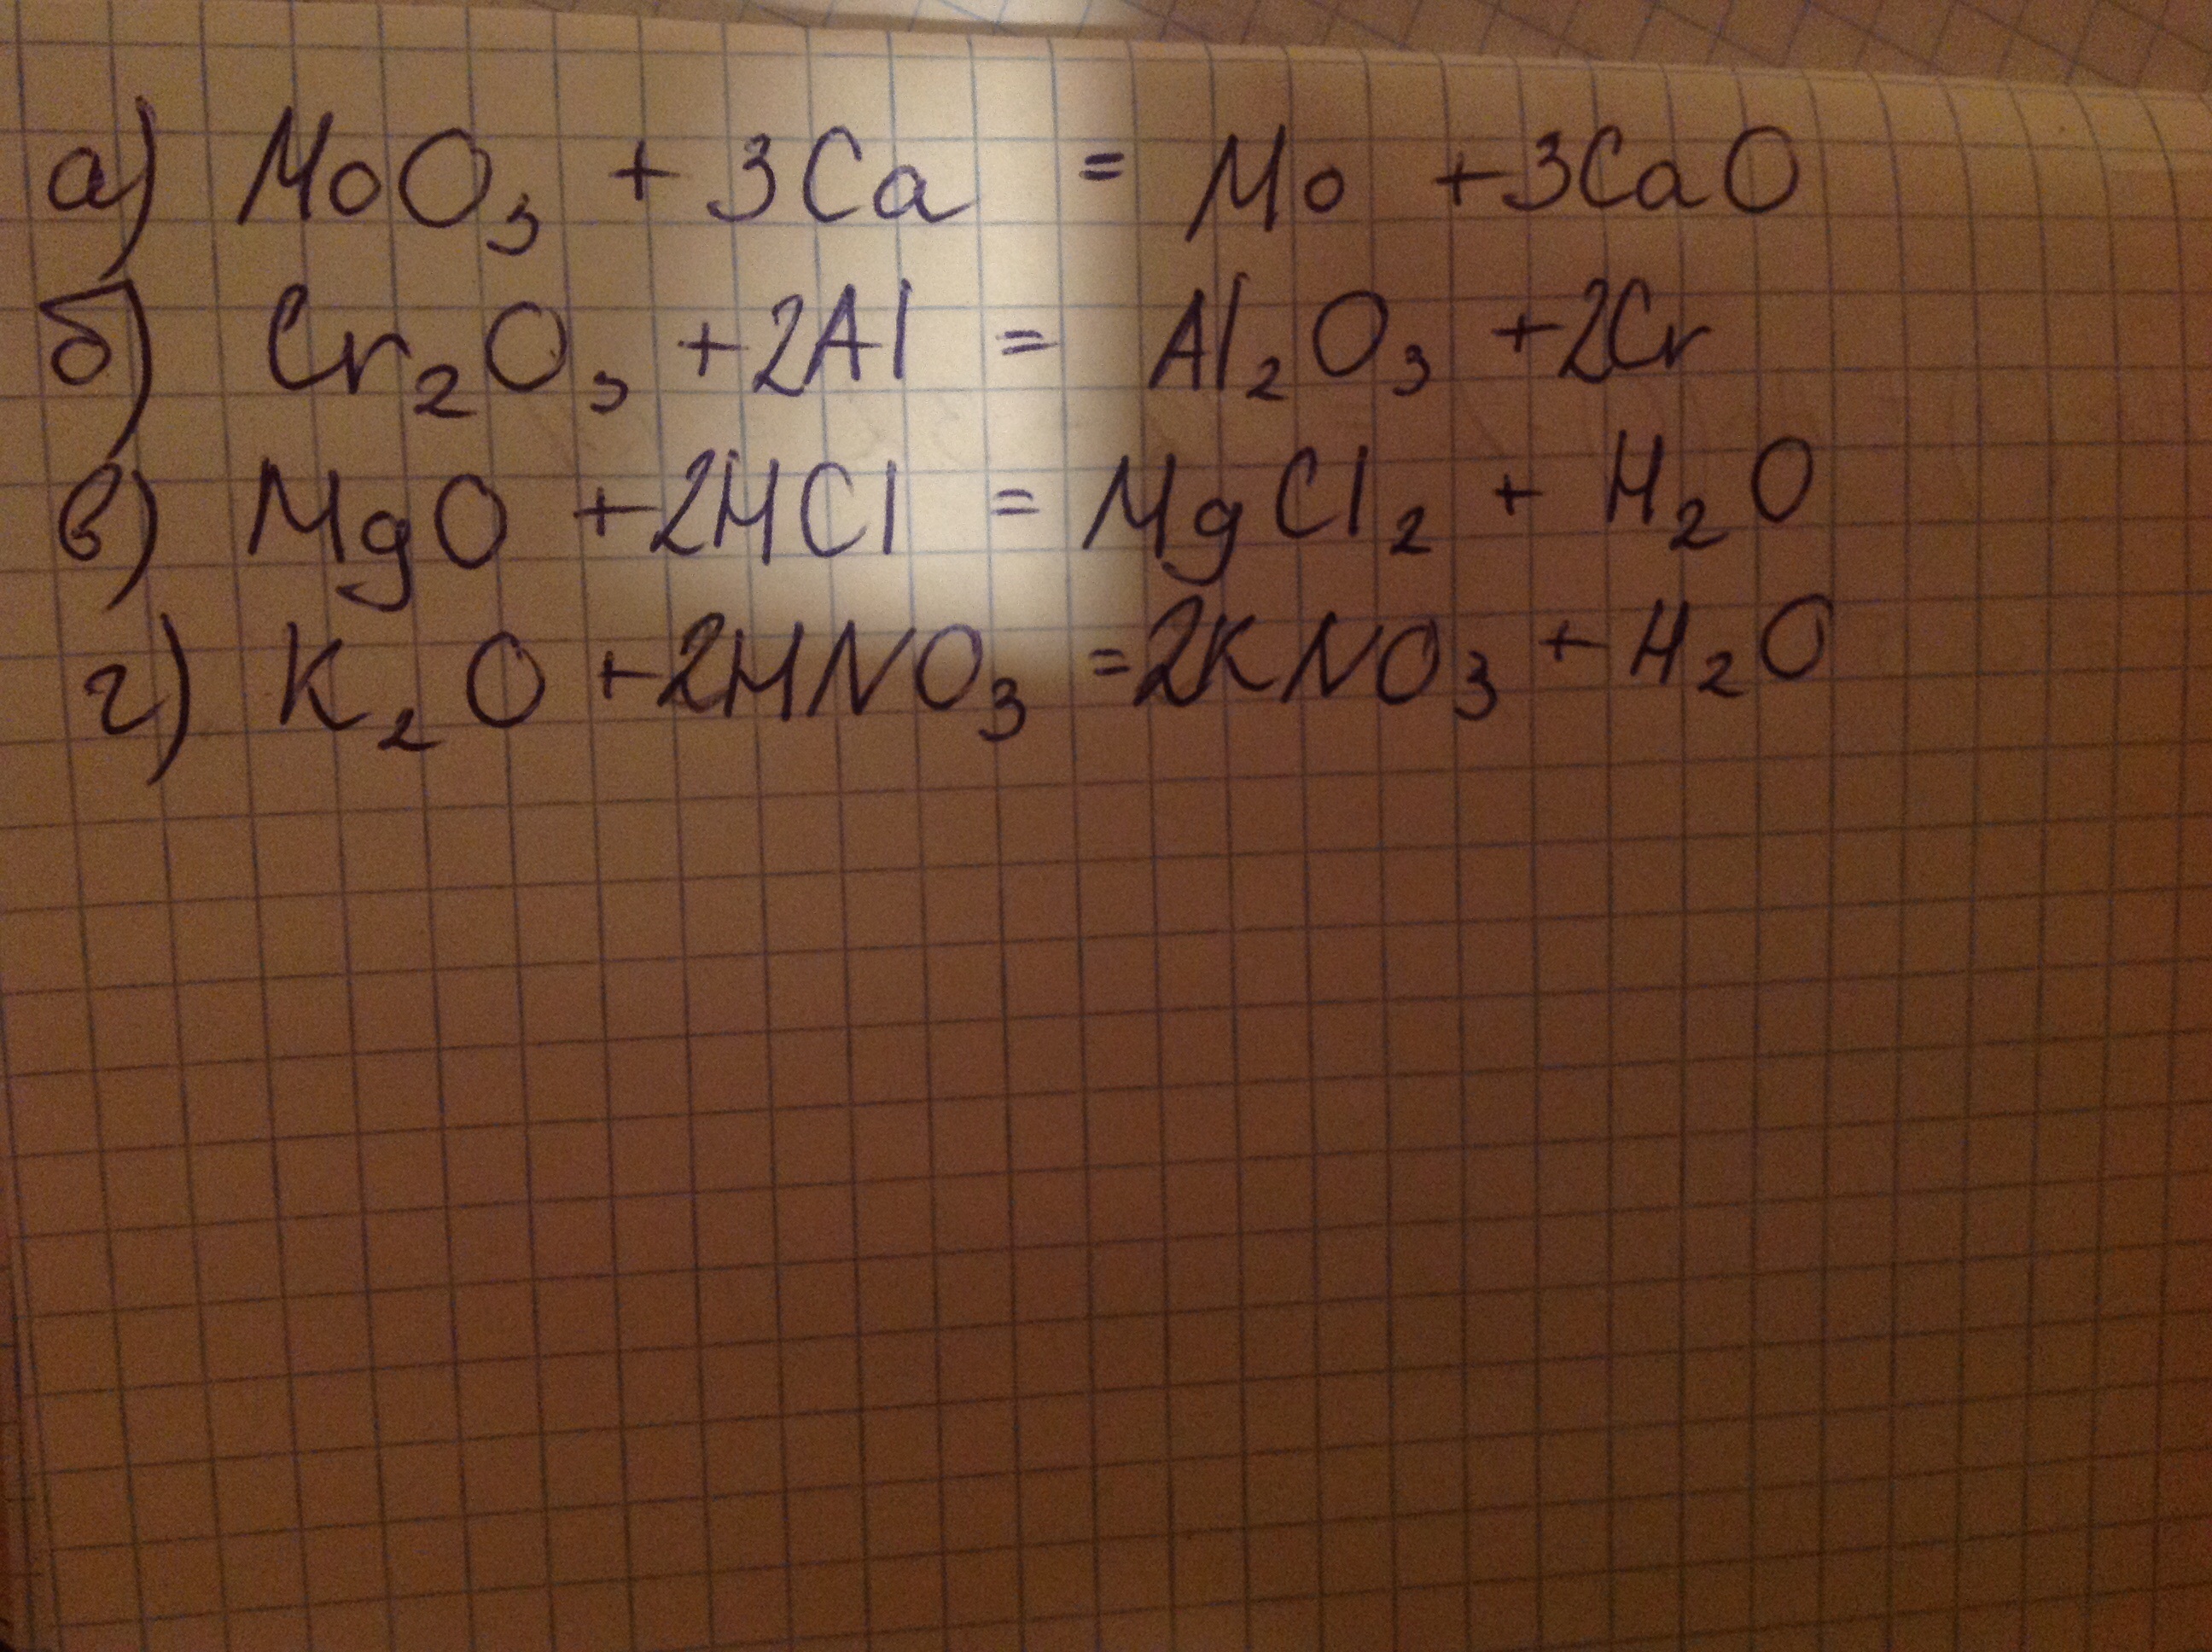 а) MoO₃ + 3Ca = Mo + 3CaO
б) Cr₂O₃ + 2Al = Al₂O₃ + 2Cr
в) MgO + 2HCl = MgCl₂ + H₂O
г) K₂O + 2HNO₃ = 2KNO₃ + H₂O